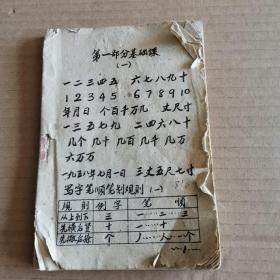 第一部分基础课
(一)
一二三四五 六七八九十
1 2 3 4 5 6 7 8 9 10
年月日 个百千万几 丈尺寸
一三五七九 二四六八十
几个 几十 几百 几千 几万
六万万
一九五八年七月一日 三丈五尺七寸
写字笔顺笔划规则(一)
规则 例字 笔顺
从上到下 三 一 二 三
先横后竖 十 一 十
先撇后捺 个 丿 人 个